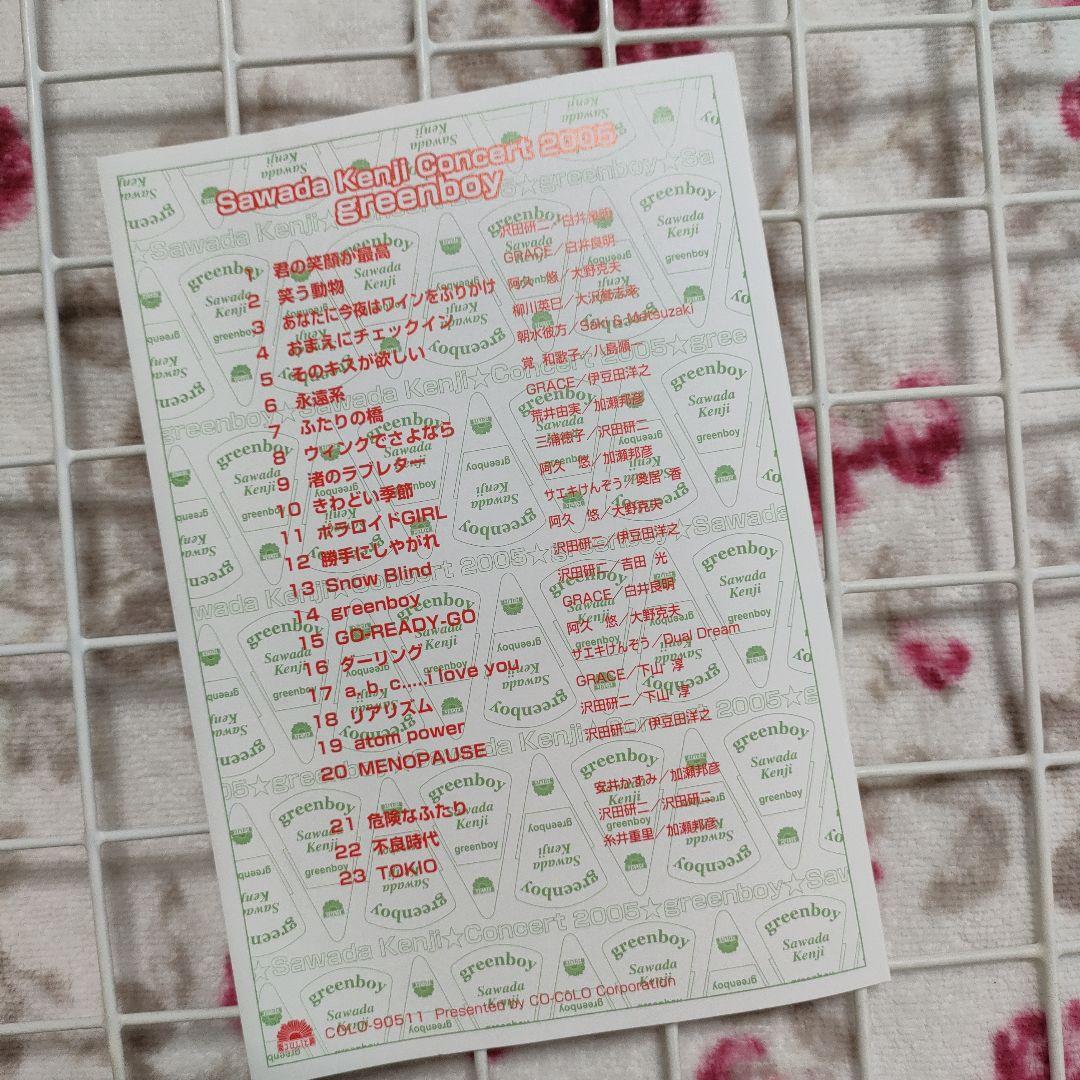 Sawada Kenji Concert 2005
greenboy
1 君の笑顔が最高 沢田研二／白井良明
2 笑う動物 GRACE／白井良明
3 あなたに今夜はワインをふりかけ 阿久 悠／大野克夫
4 おまえにチェックイン 柳川英巳／大沢誉志幸
5 そのキスが欲しい 朝水彼方／Saki & Matsuzaki
6 永遠系 覚 和歌子／八島順一
7 ふたりの橋 GRACE／伊豆田洋之
8 ウィンクでさよなら 荒井由実／加瀬邦彦
9 渚のラブレター 三浦徳子／沢田研二
10 きわどい季節 阿久 悠／加瀬邦彦
11 ポラロイドGIRL サエキけんぞう／奥居 香
12 勝手にしやがれ 阿久 悠／大野克夫
13 Snow Blind 沢田研二／伊豆田洋之
14 greenboy 沢田研二／吉田 光
15 GO-READY-GO GRACE／白井良明
16 ダーリング 阿久 悠／大野克夫
17 a, b, c.....i love you サエキけんぞう／Dual Dream
18 リアリズム GRACE／下山 淳
19 atom power 沢田研二／下山 淳
20 MENOPAUSE 沢田研二／伊豆田洋之
21 危険なふたり 安井かずみ／加瀬邦彦
22 不良時代 沢田研二／沢田研二
23 TOKIO 糸井重里／加瀬邦彦
COLO-90511 Presented by CO-CōLO Corporation